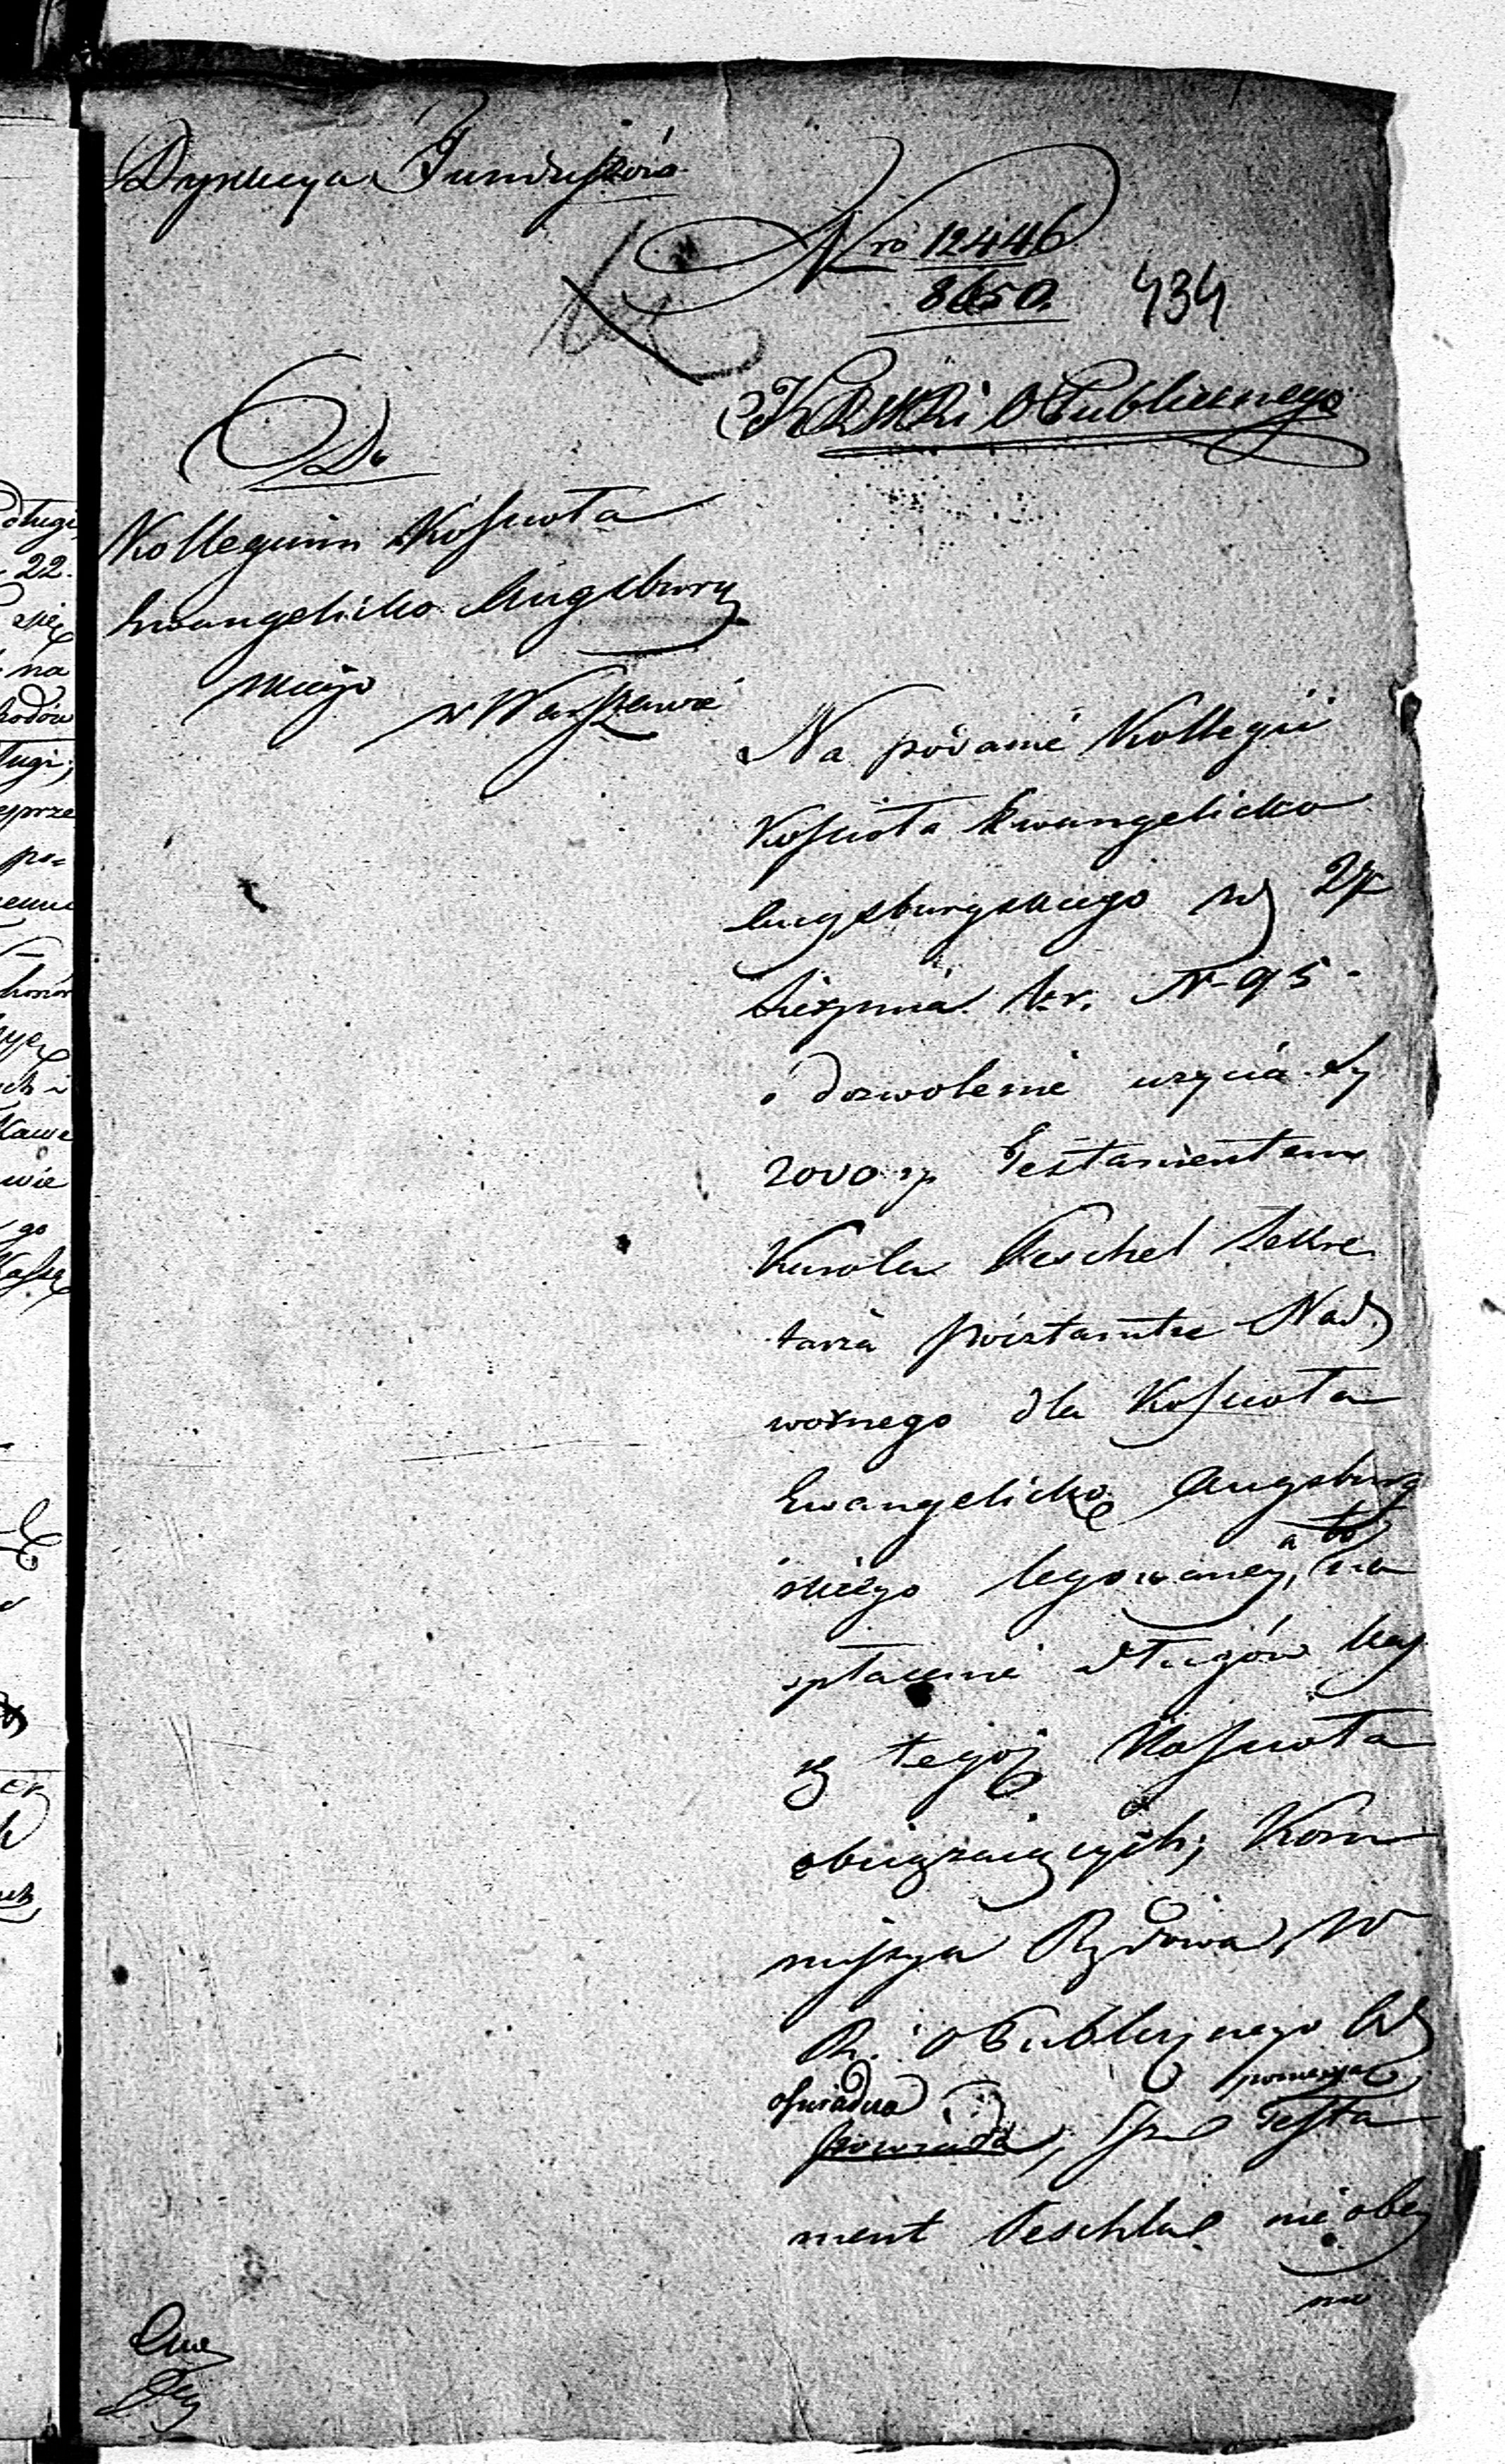 Dyrekcya Funduszów
Nro 12446
8650.
434
K R W R i O Publicznego
Do
Kollegium Kościoła
Ewangelicko Augsburg
skiego
w Warszawie
Na podanie Kollegii
Kościoła Ewangelicko
Augsburgskiego z d 27
Sierpnia b.r. N 95
o dozwolenie użycia Sy
2000 zp Testamentem
Karola Peschel Sekre
tarza Pocztamtu Nad
wornego dla Kościoła
Ewangelicko Augsburg
skiego legowaney, a to na
spłacenie długów Kas
sę tegoż Kościoła
obciążaiących; Kom
missya Rządowa, W
R. i O Publicznego
oświadcza pomieniony
powiada, Testa
ment Peschla nie obey
mu
długi
22.
się
na
hodów
ługi;
prze
po=